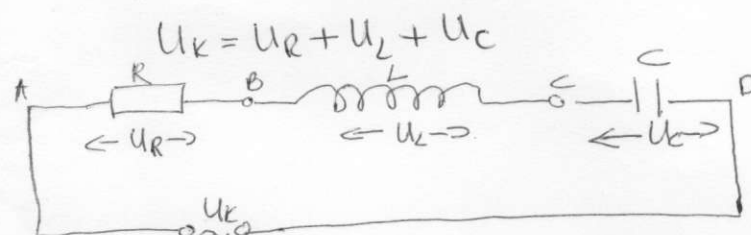 U_K = U_R + U_L + U_C
A R B L C C D
U_R U_L U_C
U_K